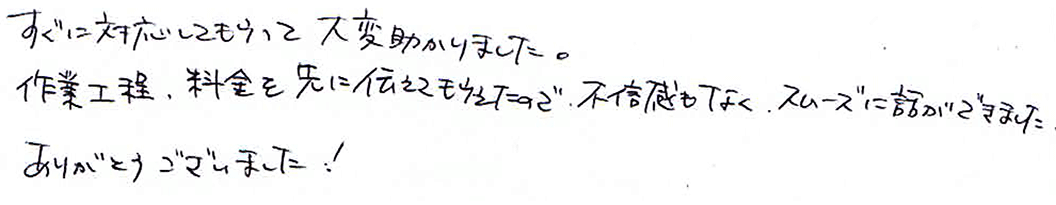 すぐに対応してもらって大変助かりました。
作業工程、料金を先に伝えてもらえたので、不信感もなく、スムーズに話ができました。
ありがとうございました!